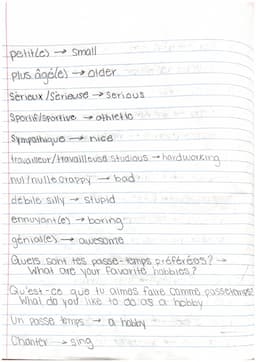 petit(e) → small
plus âgé(e) → older
Sérieux/Sérieuse → serious
Sportif/sportive → athletic
Sympathique → nice
travailleur/travailleuse studious → hardworking
nul/nulle crappy → bad
débile silly → stupid
ennuyant(e) → boring
génial(e) → awesome
Quels sont tes passe-temps préférés? →
What are your favorite hobbies?
Qu'est-ce que tu aimes faire comme passetemps?
What do you like to do as a hobby
Un passe temps → a hobby
Chanter → sing